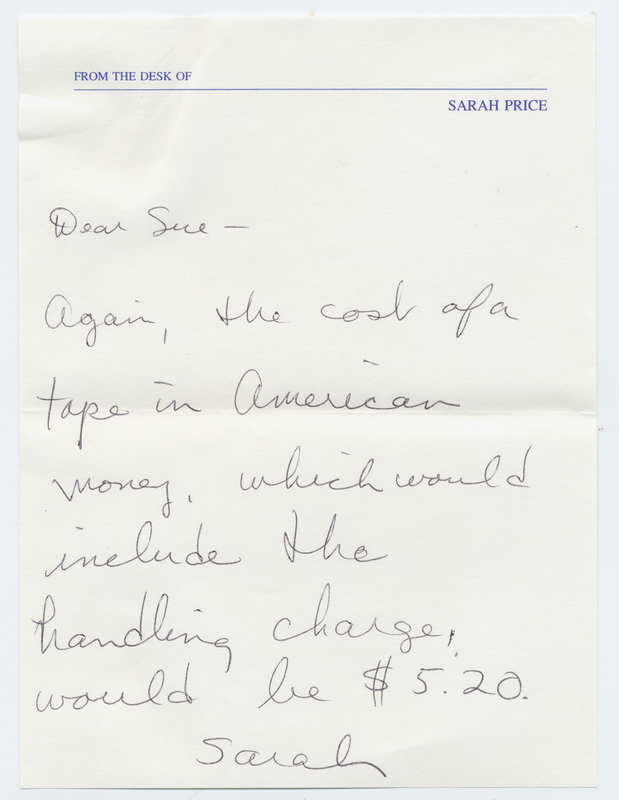 FROM THE DESK OF
SARAH PRICE
Dear Sue —
Again, the cost of a
tape in American
money, which would
include the
handling charge,
would be $5.20.
Sarah